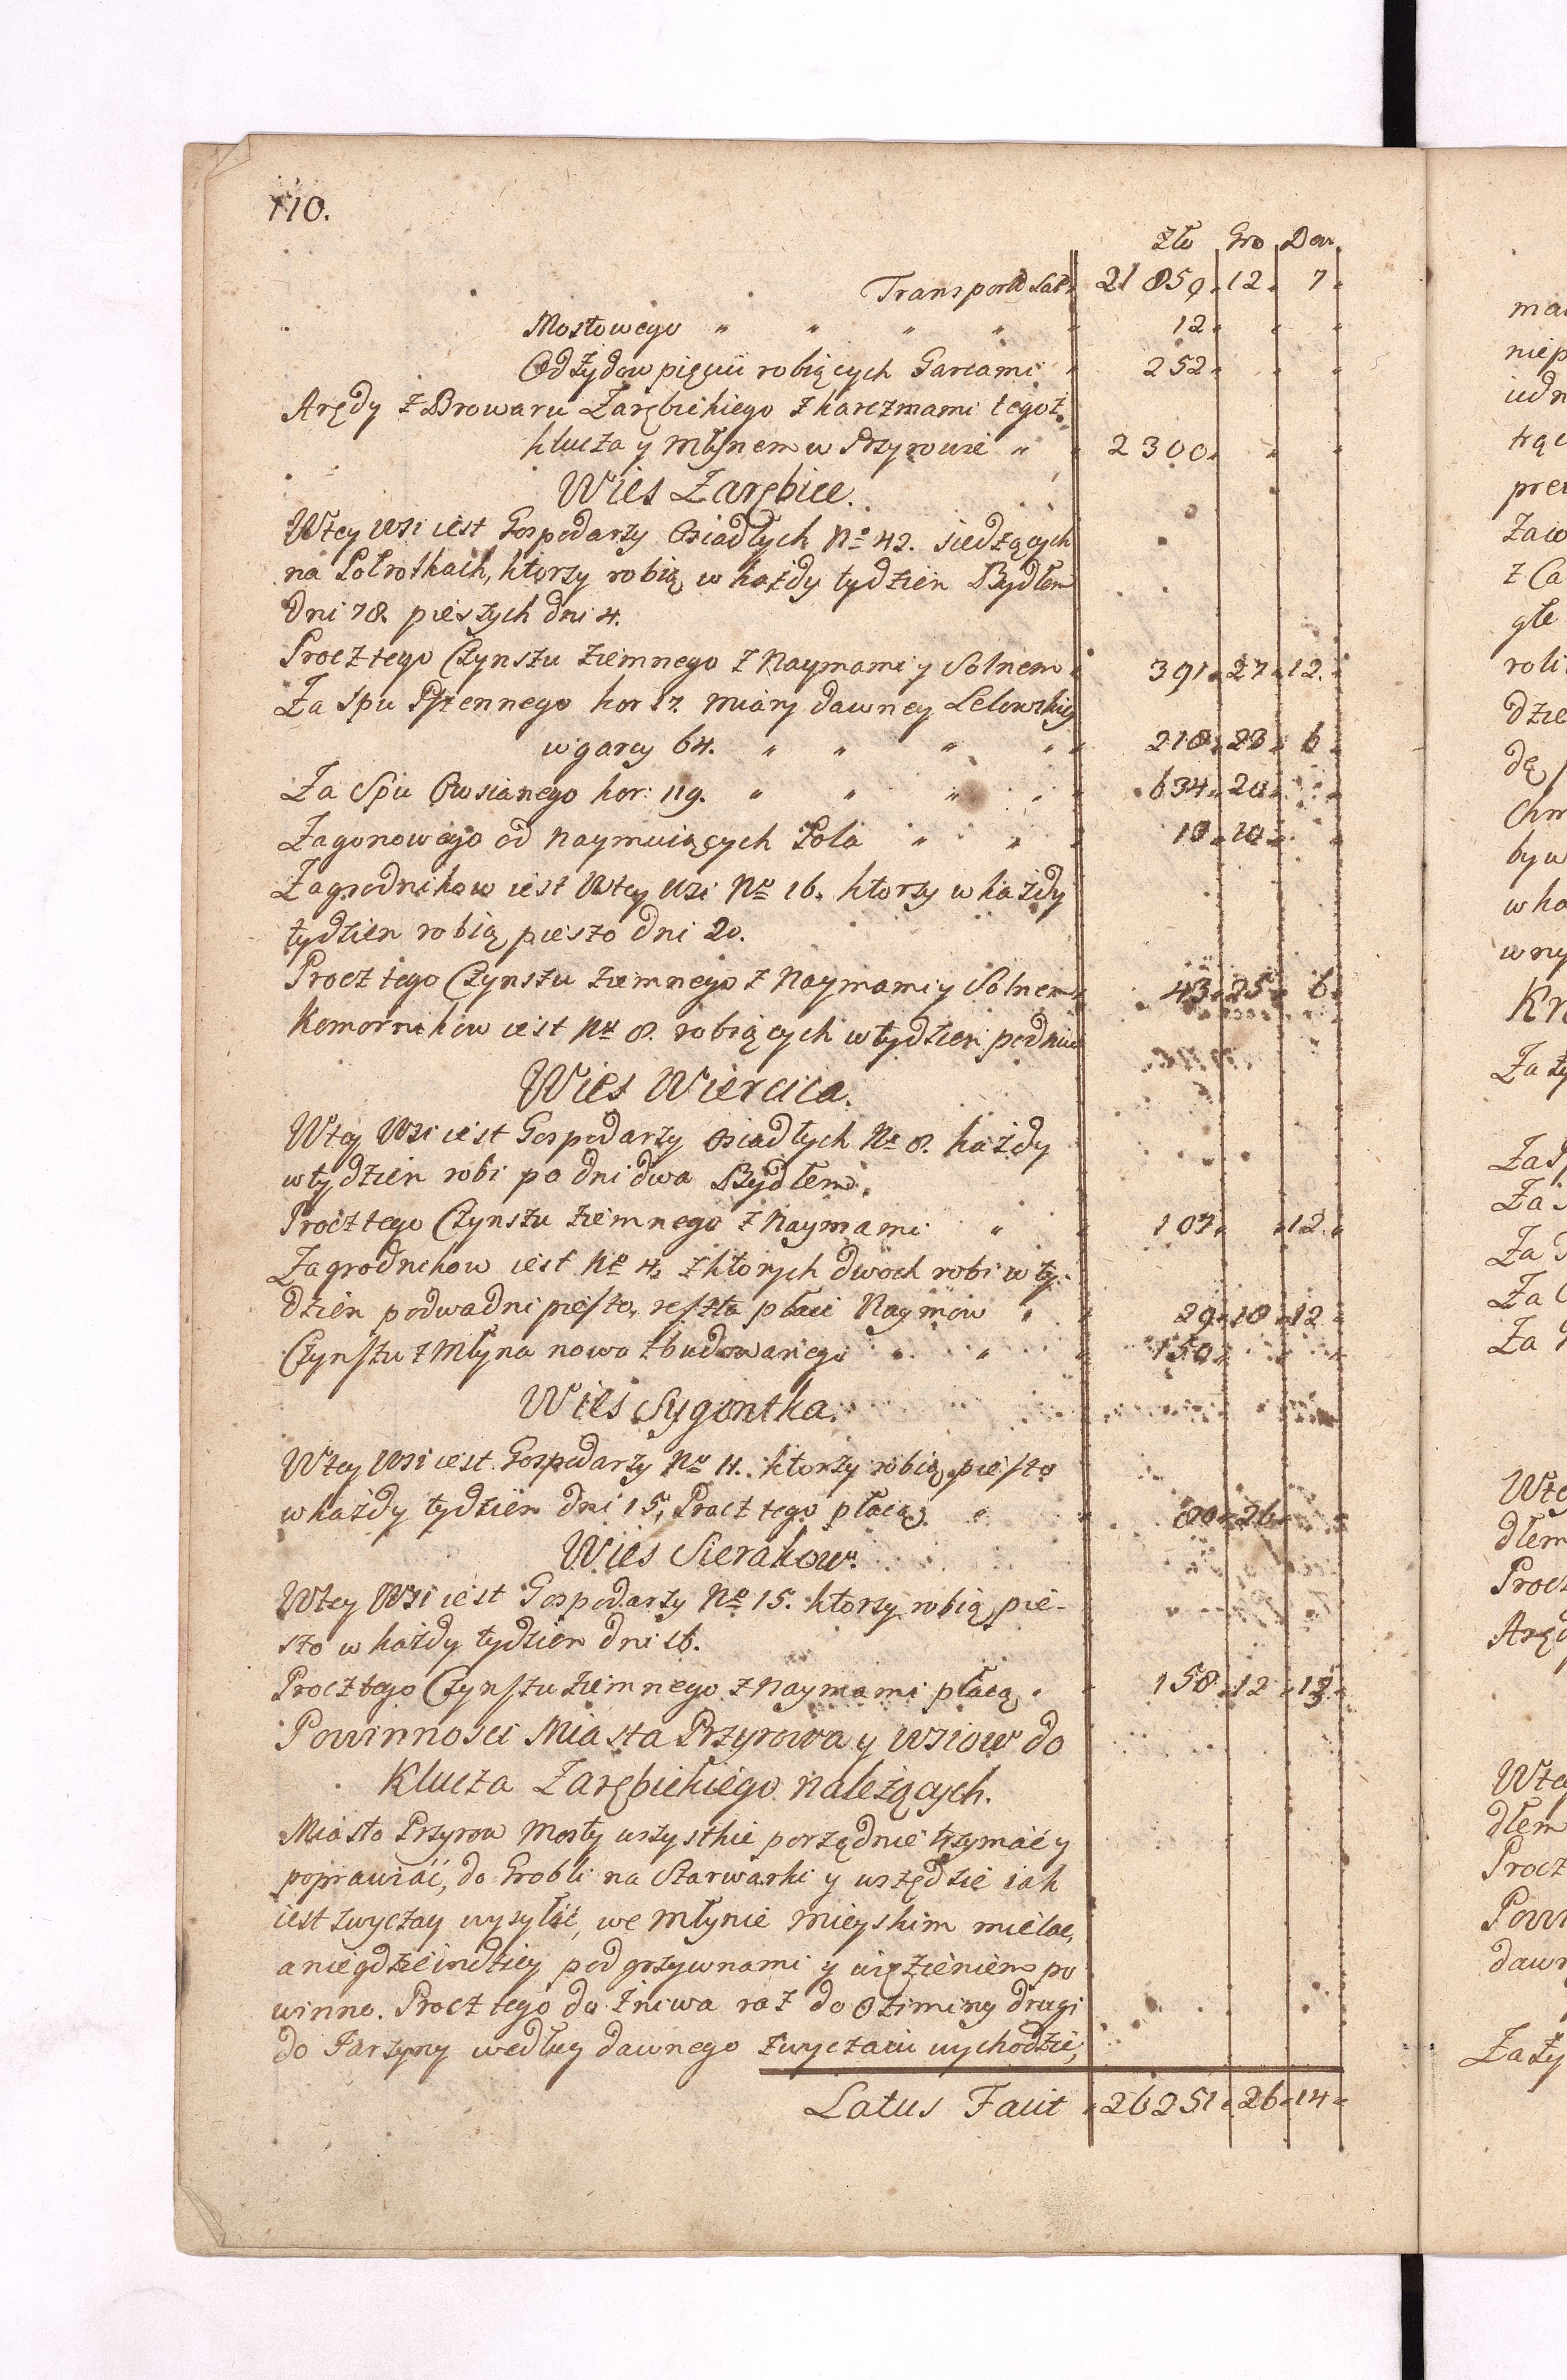 110.
Zło Gro Den.
Transport Lat. 21859. 12. 7.
Mostowego " " " " 12.
Od Żydow pięciu robiących Garcami 252.
Arędy z Browaru Zarębickiego z karczmami tegoż
klucza y Młynem w Przyrowie " 2300.
Wies Zarębice.
W tey Wsi iest Gospodarzy Osiadłych No 42. siedzących
na Połrolkach, ktorzy robią w każdy tydzień Bydłem
Dni 78. pieszych dni 4.
Procz tego Czynszu Ziemnego z Naymami y Solnem 391. 27. 12.
Za Spu Pszennego kor 17. miary dawney Lelowskiey
w garcy 64. " " " " 218. 23. 6.
Za Spu Owsianego kor: 119. " " " " 634. 20.
Zagonowego od naymuiących Pola " " 18. 10.
Zagrodnikow iest w tey Wsi No 16. ktorzy w każdy
tydzien robią pieszo dni 20.
Procz tego Czynszu Ziemnego z Naymami y Solnem 43. 25. 6.
Komornikow iest No 8. robiących w tydzien po dniu
Wies Wiercica.
W tey Wsi iest Gospodarzy Osiadłych No 8. każdy
w tydzien robi po dni dwa Bydłem.
Procz tego Czynszu Ziemnego z Naymami " 107. 12.
Zagrodnikow iest No 4. z ktorych dwoch robi w ty-
dzien po dwa dni pieszo, reszta płaci Naymow " 29. 18. 12.
Czynszu z Młyna nowo zbudowanego " " 150.
Wies Sygontka.
W tey Wsi iest Gospodarzy No 11. ktorzy robią pieszo
w każdy tydzien dni 15, Procz tego płacą " 80. 26.
Wies Sierakow.
W tey Wsi iest Gospodarzy No 15. ktorzy robią pie-
szo w każdy tydzien dni 16.
Procz tego Czynszu Ziemnego z Naymami płacą. 158. 12. 13.
Powinnosci Miasta Przyrowa y Wsiow do
Klucza Zarębickiego należących.
Miasto Przyrow Mosty wszystkie porządnie trzymać y
poprawiać, do Grobli na Szarwarki y wszędzie iak
iest zwyczay wysyłać, we Młynie mieyskim mielac,
a niegdzieindziey pod grzywnami y więzieniem po
winno. Procz tego do Zniwa raz do Oziminy drugi
do Jarzyny według dawnego zwyczaiu wychodzić,
Latus Facit 26251. 26. 14.